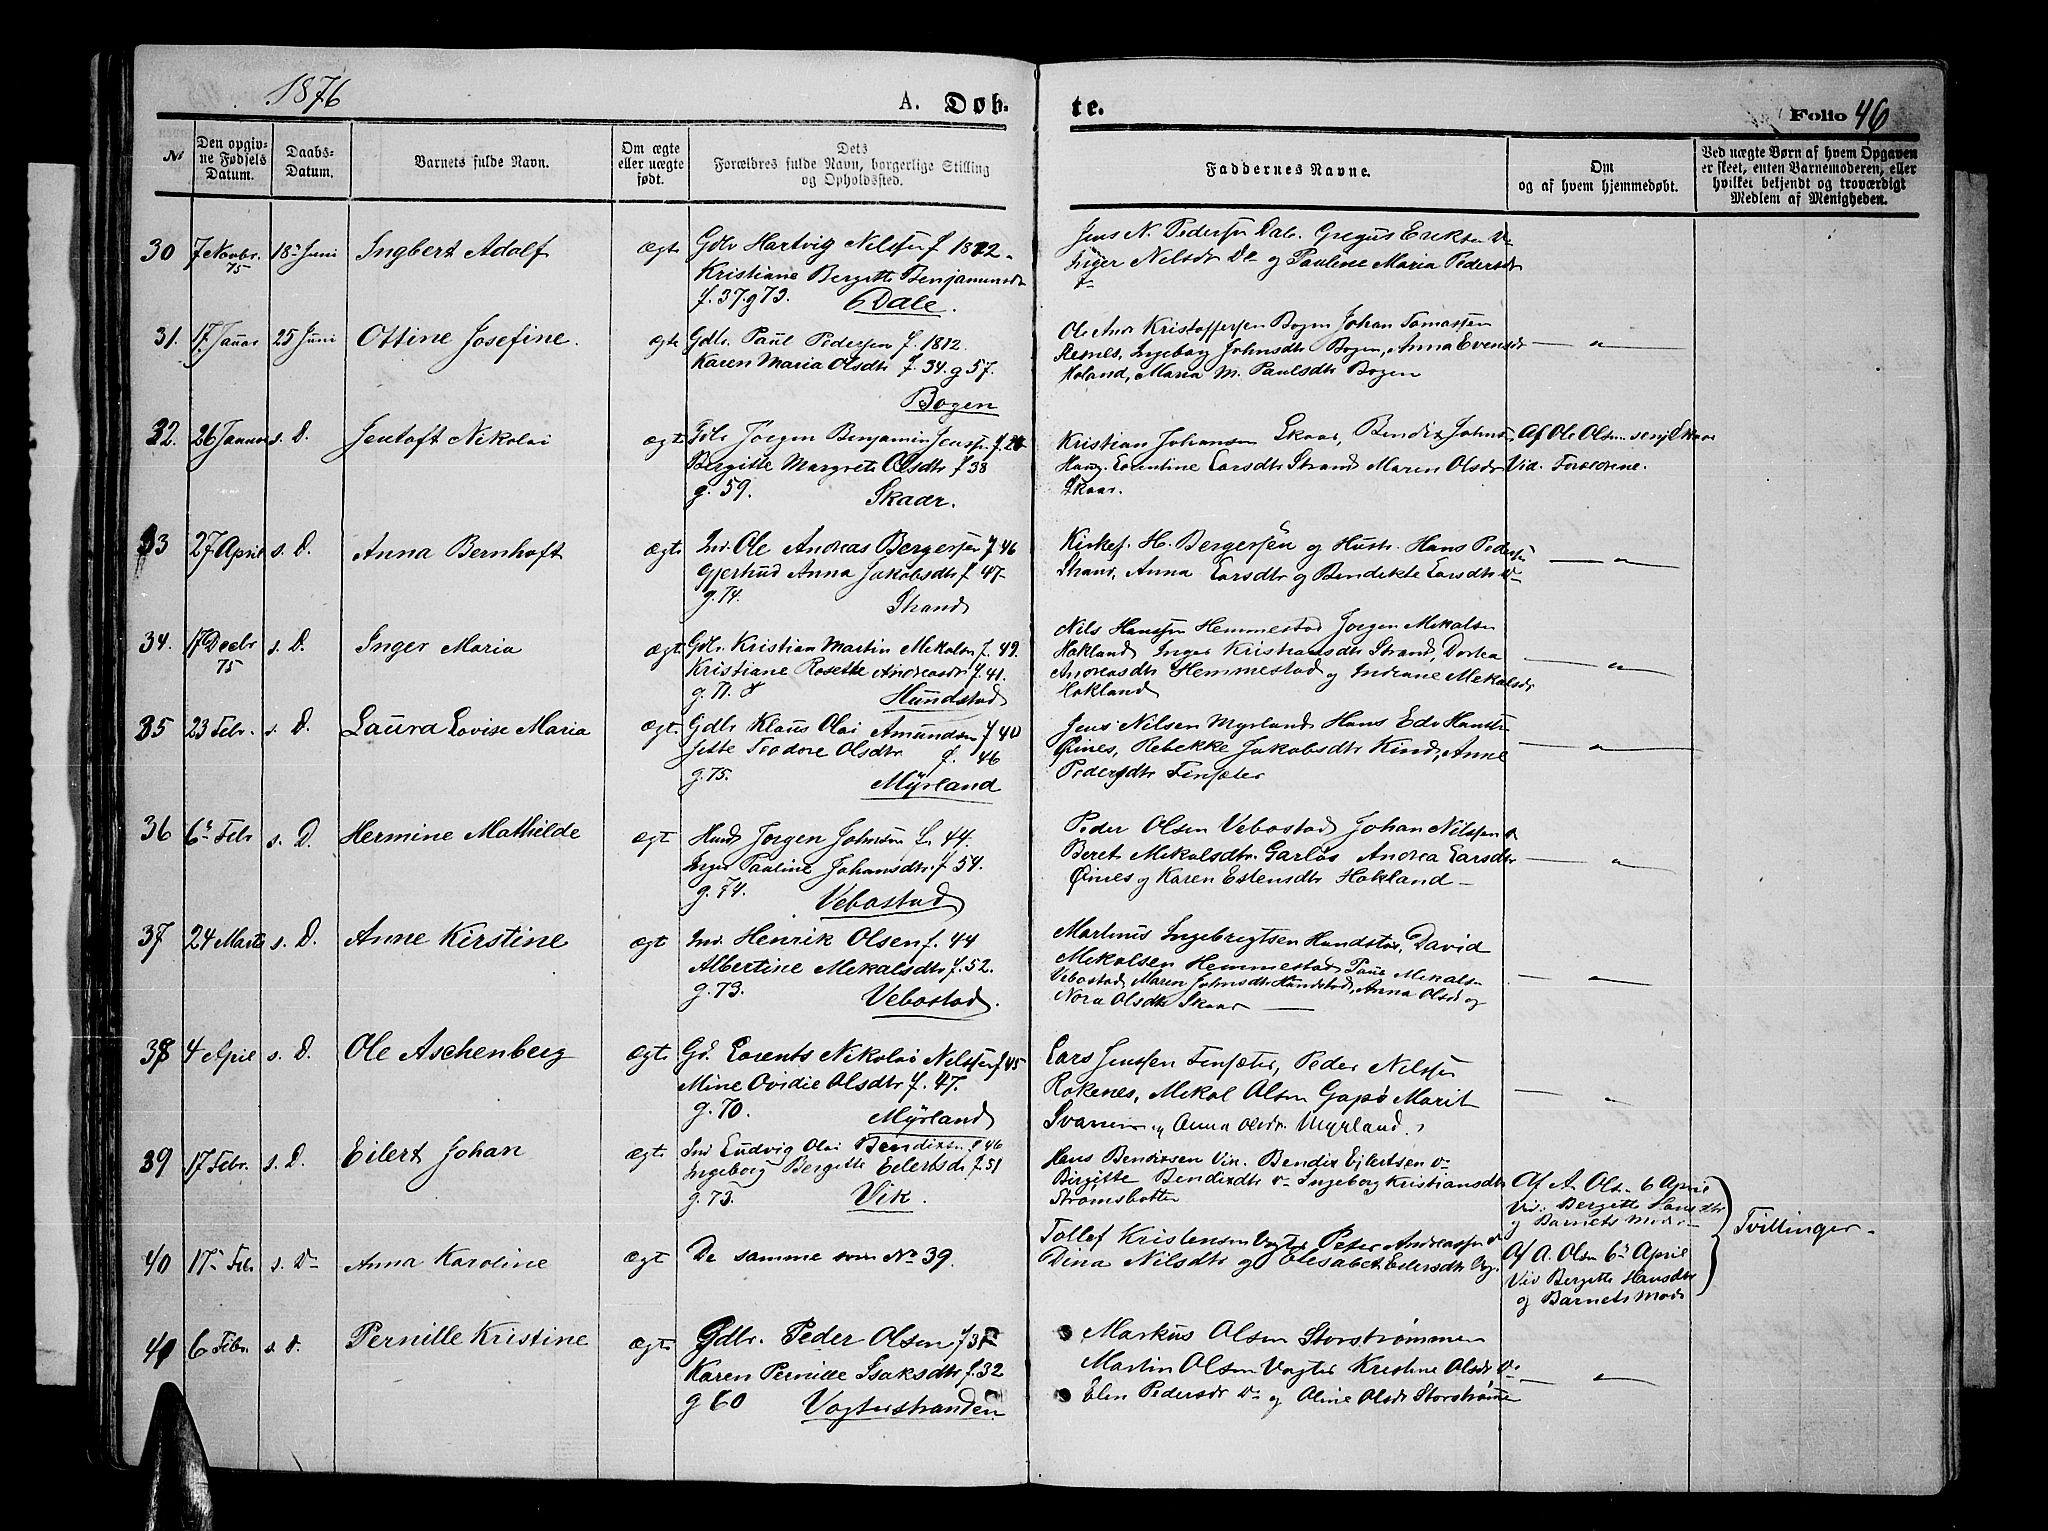 1876
A. Døb-
te.
Folio 46
№
Den opgiv-
ne Fødsels
Datum.
Daabs-
Datum.
Barnets fulde Navn.
Om ægte
eller uægte
født.
Dets
Forældres fulde Navn, borgerlige Stilling
og Opholdssted.
Faddernes Navne.
Om
og af hvem hjemmedøbt.
Ved uægte Børn af hvem Opgaven
er skeet, enten Barnemoderen, eller
hvilket beljendt og troværdigt
Medlem af Menigheden.
30 7 Novbr. 75 18de Juni Ingbert Adolf ægte
Gdbr Hartvig Nilssen f 1822
Kristiane Bergitte Benjaminsdt
f. 37. g 73. Dale.
Jens N. Pedersen Dale. Gregus Eriksen Do
Inger Nilsdt Do og Pauline Maria Pedersdt
Do
31. 17. Januar 25 Juni Ottine Josefine. ægte
Gdbr. Paul Pedersen f. 1812.
Karen Maria Olsdtr f. 34. g 57.
Bogen
Ole Andr Kristoffersen Bogen Johan Tomassen
Renes, Ingebog Johnsdtr Bogen, Anna Evensdt
Holand, Maria M. Paulsdtr Bogen
— " —
32. 26 Januar s. D. Jentoft Nikolai ægte
Gdbr Jørgen Benjamin Jenssen f. 28
Bergitte Margrete Olsdtr f 38
g. 59. Skaar.
Kristian Johansen Skaar, Bendix Johns.
Haug. Lorentine Larsdtr Strand Maren Olsdt
Skaar.
Af Ole Olsen senj Skaar
Vid. Forældrene.
33 27 April s. D. Anna Bernhoft ægte
Ind. Ole Andreas Bergersen f 46
Gjertrud Anna Jakobsdtr f 47
g. 74. Strand
Kirkes. H. Bergersen og Hustr. Hans Peders
Strand, Anna Larsdtr og Bendikte Larsdtr Do
— " —
34. 17 Decbr 75 s. D. Inger Maria ægte
Gdbr. Kristian Martin Mekalsn f. 49.
Kristiane Rosette Andreasdt f. 41.
g. 71. Hundstad
Nils Hanssen Hemmestad Jørgen Mekalsn
Hokland, Inger Kristiansdtr Strand, Dorthea
Andreasdtr Hemmestad og Indiane Mekalsdt
Hokland
— " —
35 23 Febr. s. D. Laura Lovise Maria ægte
Gdbr Klaus Olai Amundsen f 40
Jette Teodore Olsdtr f. 46
g. 75. Myrland
Jens Nilsen Myrland Hans Edv Hansen
Øines, Rebekke Jakobsdtr Kind, Anne
Pedersdtr Finsæter
— " —
36 6te Febr s. D. Hermine Mathilde ægt
Husm Jørgen Johnsen f. 44.
Inger Pauline Johansdtr f. 54.
g. 74. Vebostad
Peder Olsen Vebostad Johan Nilssen Do
Beret Mekalsdtr. Garløs Andrea Larsdtr
Øines og Karen Estensdtr Hokland —
— " —
37 24 Marts s. D. Anne Kirstine ægt
Ind. Henrik Olsen f. 44
Albertine Mekalsdtr f. 52.
g. 73. Vebostad.
Martinus Ingebregtsen Hundstad, David
Mekalsen Hemmestad Paul Mekalsn
Vebostad Maren Johnsdtr Hundstad, Anna Olsd og
Nora Olsdtr Skaar —
— " —
38 4 April s. D. Ole Aschenberg ægte
Gd. Lorents Nikolai Nilssen f 45
Mine Ovidie Olsdtr f. 47.
g. 70. Myrland
Lars Jenssen Finsæter, Peder Nilssen
Rokenes, Mekal Olsen Gapø Marit
og Anna Olsdtr. Myrland.
— " —
39 17 Febr. s. D. Eilert Johan ægte
Ind Ludvig Olai Bendixsen f 46
Ingeborg Bergitte Eilertsdt f. 51
g. 73. Vik.
Hans Bendixsen Vik. Bendix Ejlertsen Do
Birgitte Bendixdtr Do Ingeborg Kristiansdtr
Strømsbotten
Af A. Olsn 6 April
Vid. Bergitte Hansdtr
og Barnets Moder
Tvillinger
40 17de Febr s. D Anna Karoline ægt
De samme som No 39.
Tollef Kristensen Vogter Peter Andreassen Do
Dina Nilsdtr og Elisabet Eilersdtr Vog.
Af A. Olsn 6te April
Vid Bergitte Hansdtr
og Barnets Mod
41 6 Febr. s. D. Pernille Kristine ægte
Gdbr. Peder Olsen f 37
Karen Pernille Isaksdtr f. 32
g 60 Vogterstranden
Markus Olsen Storstrømmen
Martin Olsen Vogter Kristine Olsdt Do
Elen Pedersdt Do og Oline Olsdt Storstrømme
— " —